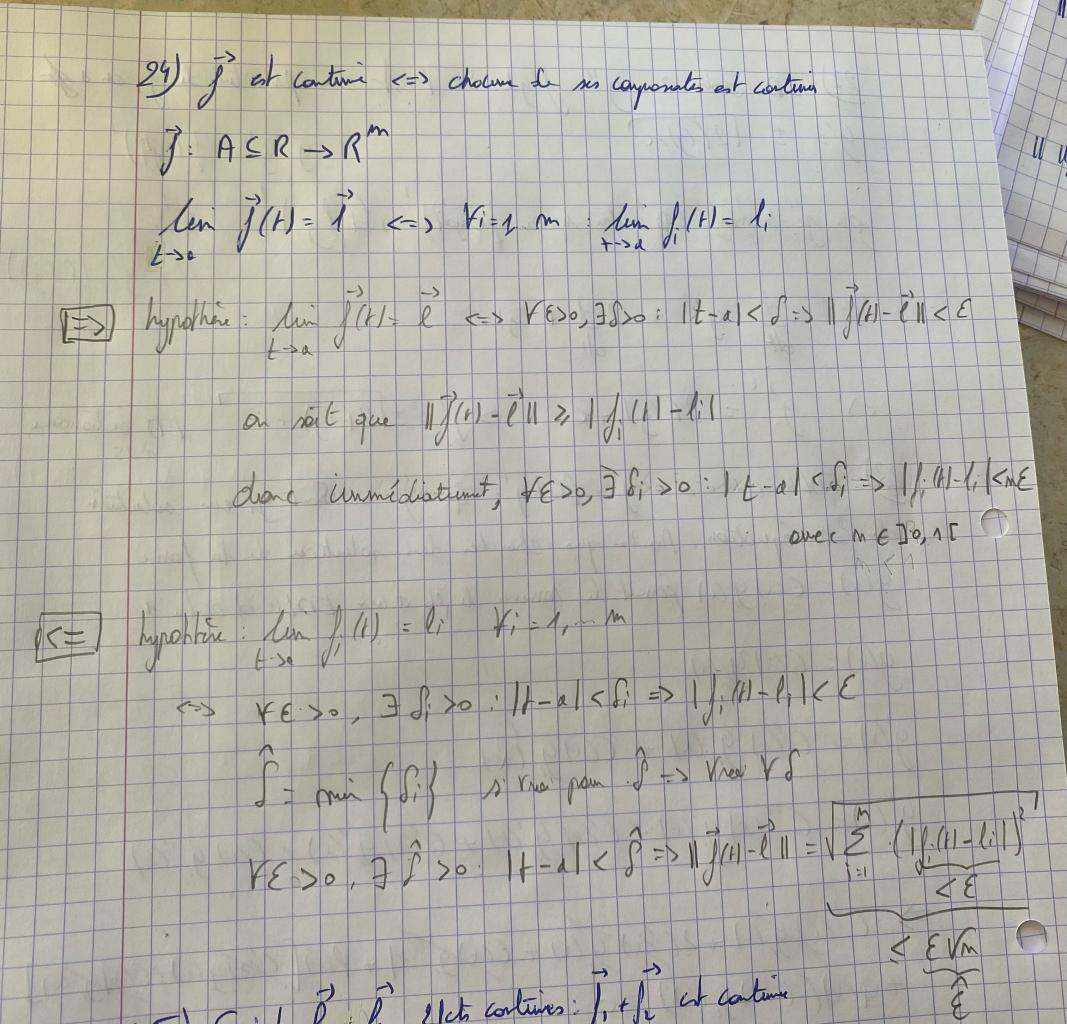 24) f⃗ est continue <=> chacune de ses composantes est continue
f⃗ : A ⊆ R → Rᵐ
lim t→a f⃗(t) = l⃗ <=> ∀i=1 m : lim t→a fᵢ(t) = lᵢ
=> hypothèse : lim t→a f⃗(t) = l⃗ <=> ∀ε>0, ∃δ>0 : |t-a| < δ => ||f⃗(t) - l⃗|| < ε
on sait que ||f⃗(t) - l⃗|| ≥ |fᵢ(t) - lᵢ|
donc immédiatement, ∀ε>0, ∃δᵢ>0 : |t-a| < δᵢ => |fᵢ(t) - lᵢ| < nε
avec n ∈ ]0,1[
<= hypothèse : lim t→a fᵢ(t) = lᵢ ∀i = 1, ... m
<=> ∀ε>0, ∃δᵢ>0 : |t-a| < δᵢ => |fᵢ(t) - lᵢ| < ε
δ̂ = min {δᵢ} si vrai pour δ̂ => vrai ∀δ
∀ε>0, ∃δ̂>0 : |t-a| < δ̂ => ||f⃗(t) - l⃗|| = √ Σ i=1 m (|fᵢ(t) - lᵢ|)²
< ε
≤ ε√m
ε̂
continues : f⃗₁ + f⃗₂ est continue